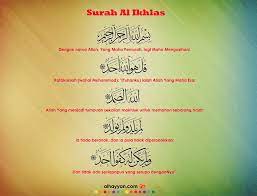 Surah Al Ikhlas
بِسْمِ اللَّهِ الرَّحْمَٰنِ الرَّحِيمِ
Dengan nama Allah, Yang Maha Pemurah, lagi Maha Mengasihani
قُلْ هُوَ اللَّهُ أَحَدٌ
Katakanlah (wahai Muhammad): "(Tuhanku) ialah Allah Yang Maha Esa:
اللَّهُ الصَّمَدُ
Allah Yang menjadi tumpuan sekalian makhluk untuk memohon sebarang hajat:
لَمْ يَلِدْ وَلَمْ يُولَدْ
Ia tiada beranak, dan ia pula tidak diperanakkan:
وَلَمْ يَكُن لَّهُ كُفُوًا أَحَدٌ
Dan tidak ada sesiapapun yang serupa denganNya
ahayyan.com